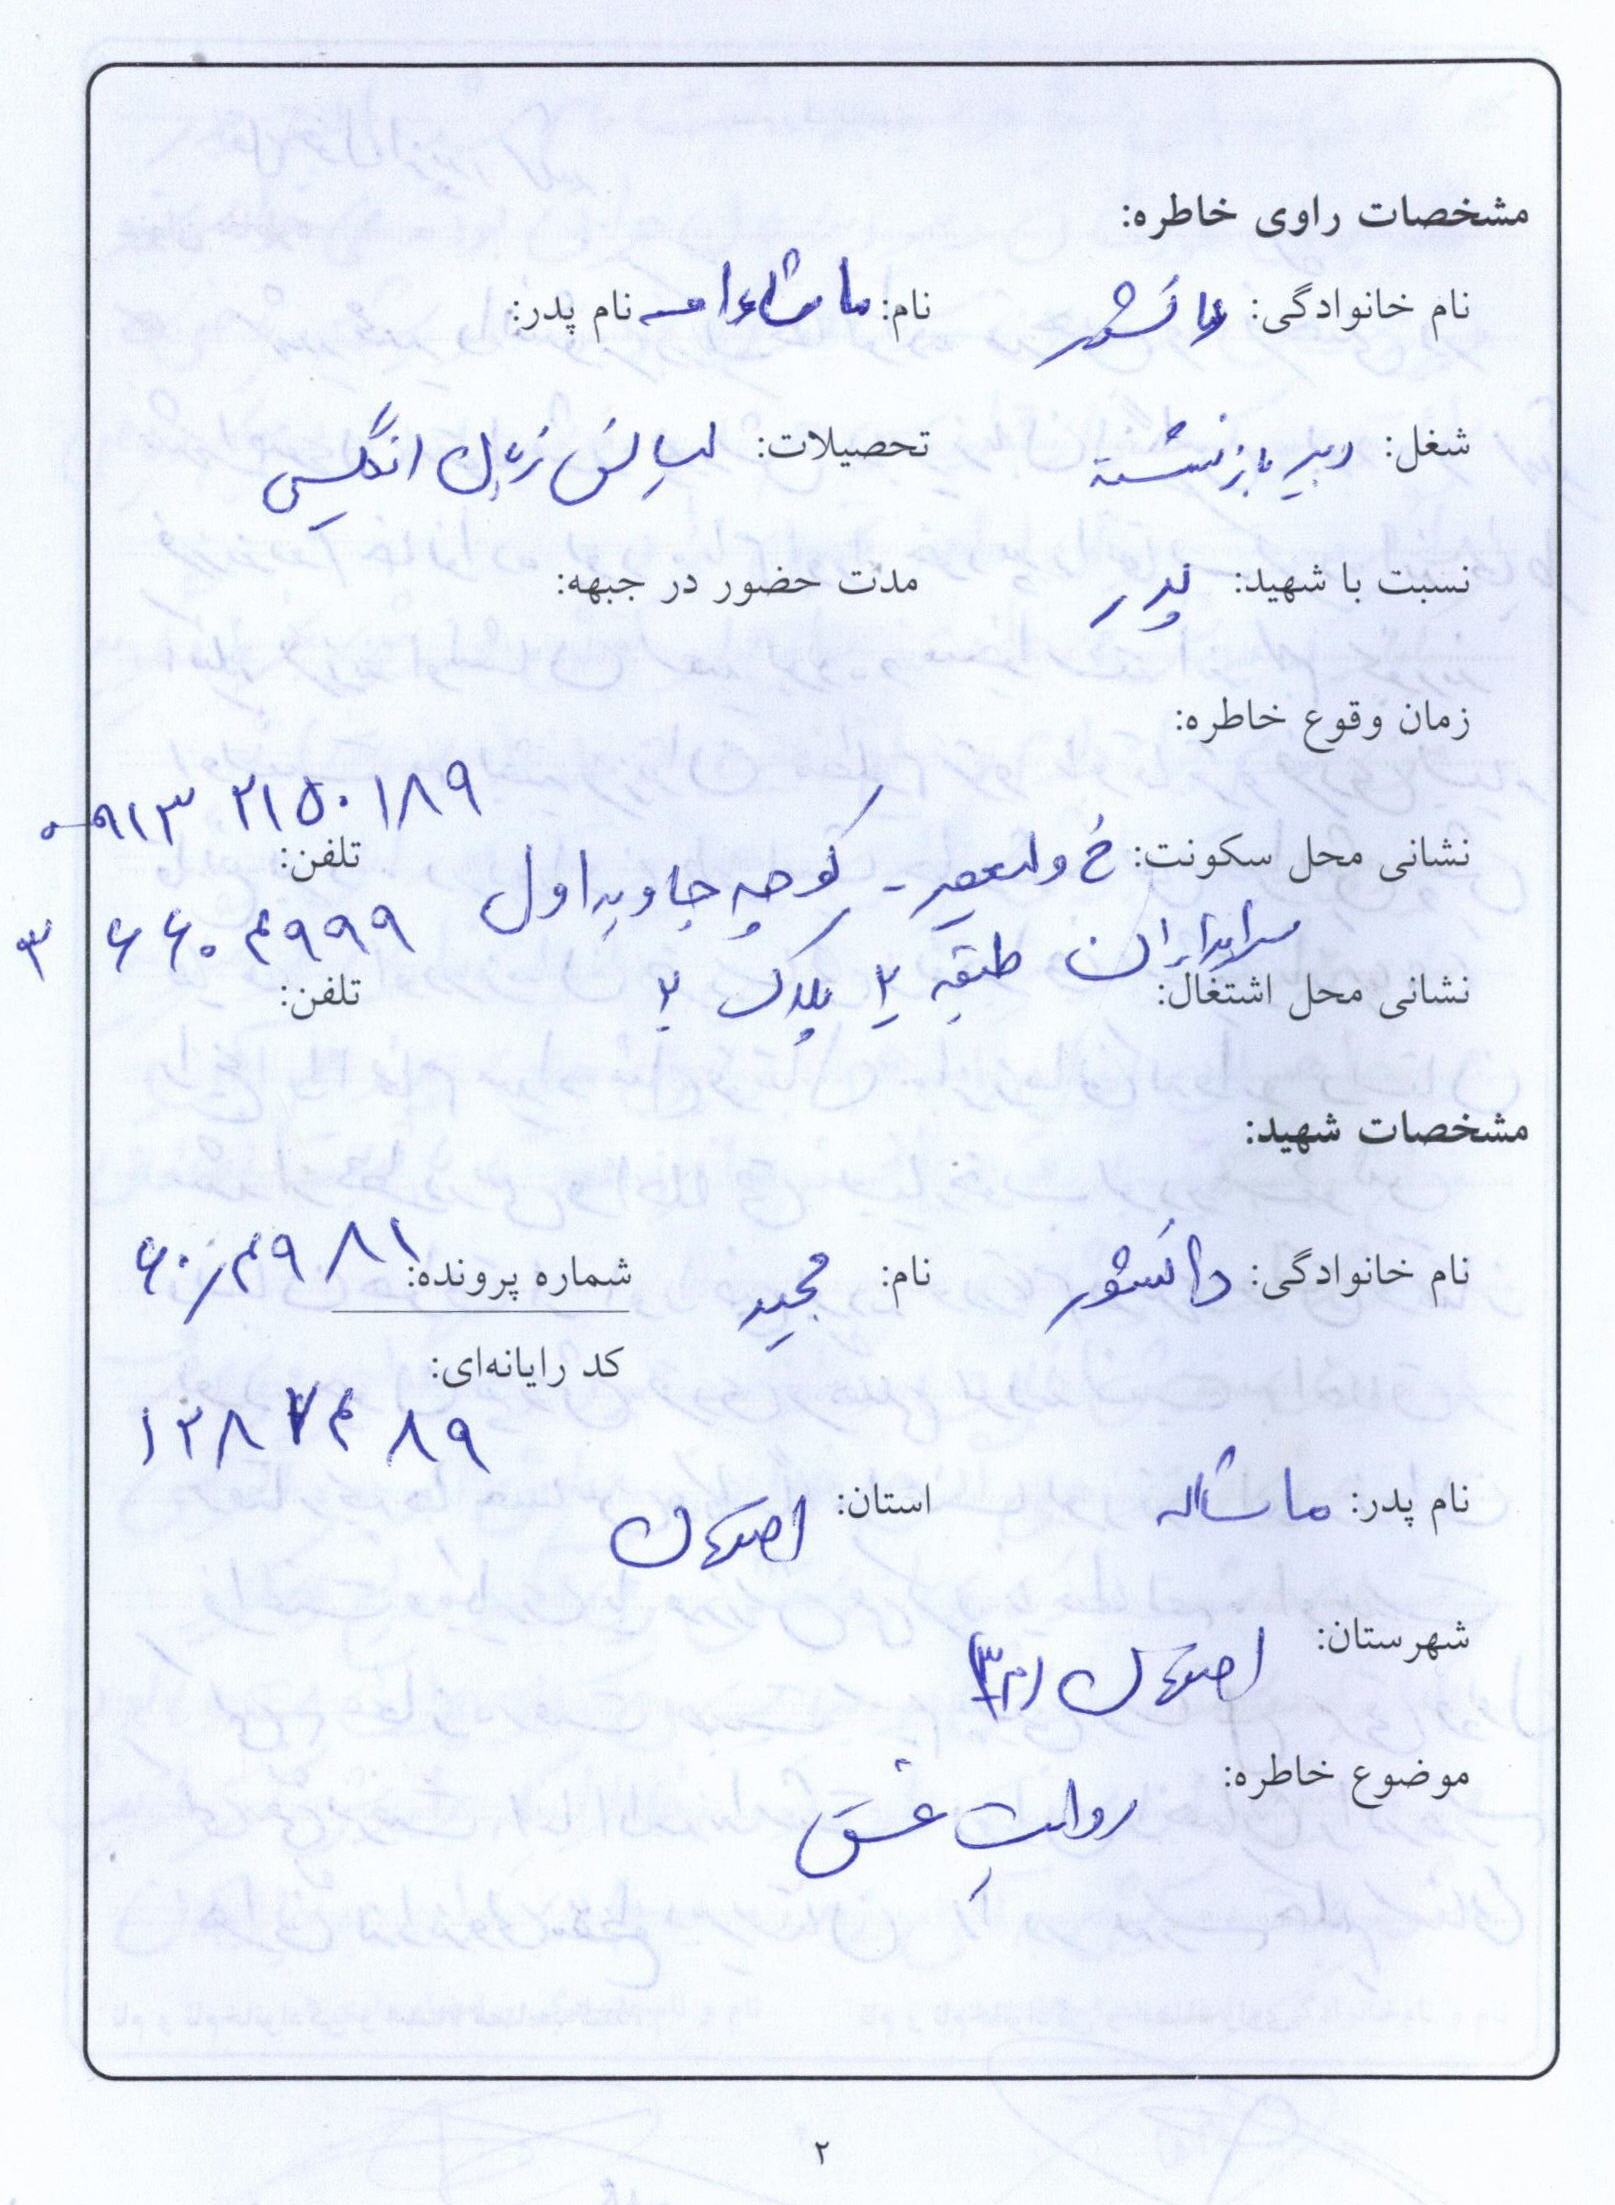 مشخصات راوی خاطره:
نام خانوادگی: دانشور نام: ماشاءاله نام پدر:
شغل: دبیر بازنشسته تحصیلات: لیسانس زبان انگلیسی
نسبت با شهید: پدر مدت حضور در جبهه:
زمان وقوع خاطره:
۰۹۱۳ ۲۱۵۰۱۸۹
نشانی محل سکونت: خ ولیعصر - کوچه جاوید اول تلفن:
طبقه ۲ پلاک ۲ ۳۶۶۰۴۹۹۹
نشانی محل اشتغال: تلفن:
مشخصات شهید:
نام خانوادگی: دانشور نام: مجید شماره پرونده: ۶۰/۴۹۸۱
کد رایانه‌ای:
۱۲۸۷۴۸۹
نام پدر: ماشاله استان: اصفهان
شهرستان: اصفهان
موضوع خاطره: روایتِ عشق
۲